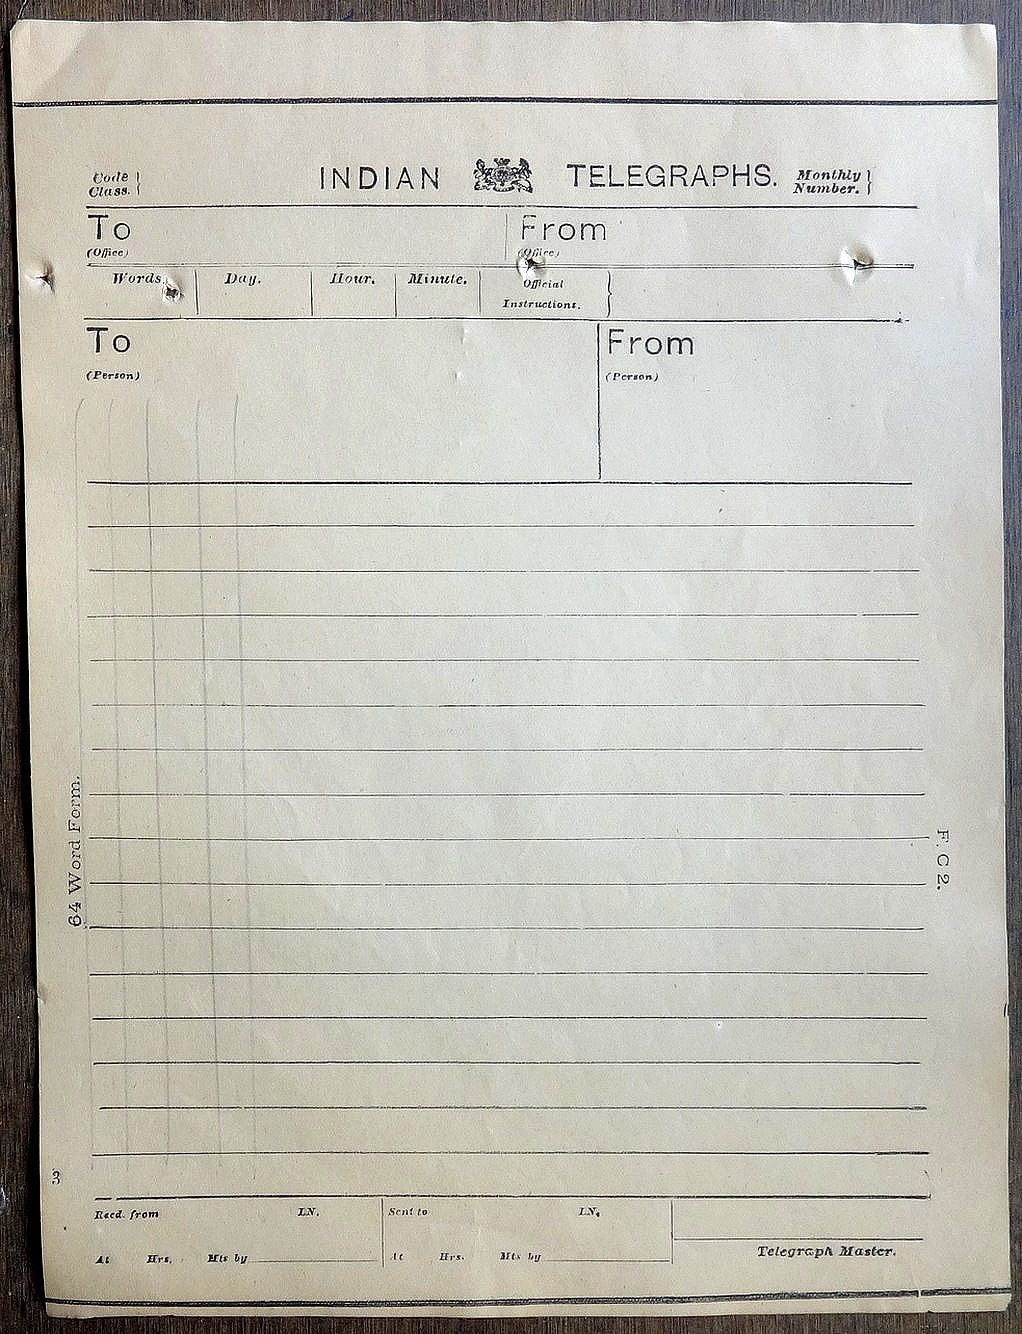 Code Class. } INDIAN TELEGRAPHS. Monthly Number. }
To From
(Office) (Office)
Words. Day. Hour. Minute. Official Instructions. }
To From
(Person) (Person)
64 Word Form.
F. C 2.
3
Recd. from LN. Sent to LN.
At Hrs. Mts by At Hrs. Mts by Telegraph Master.